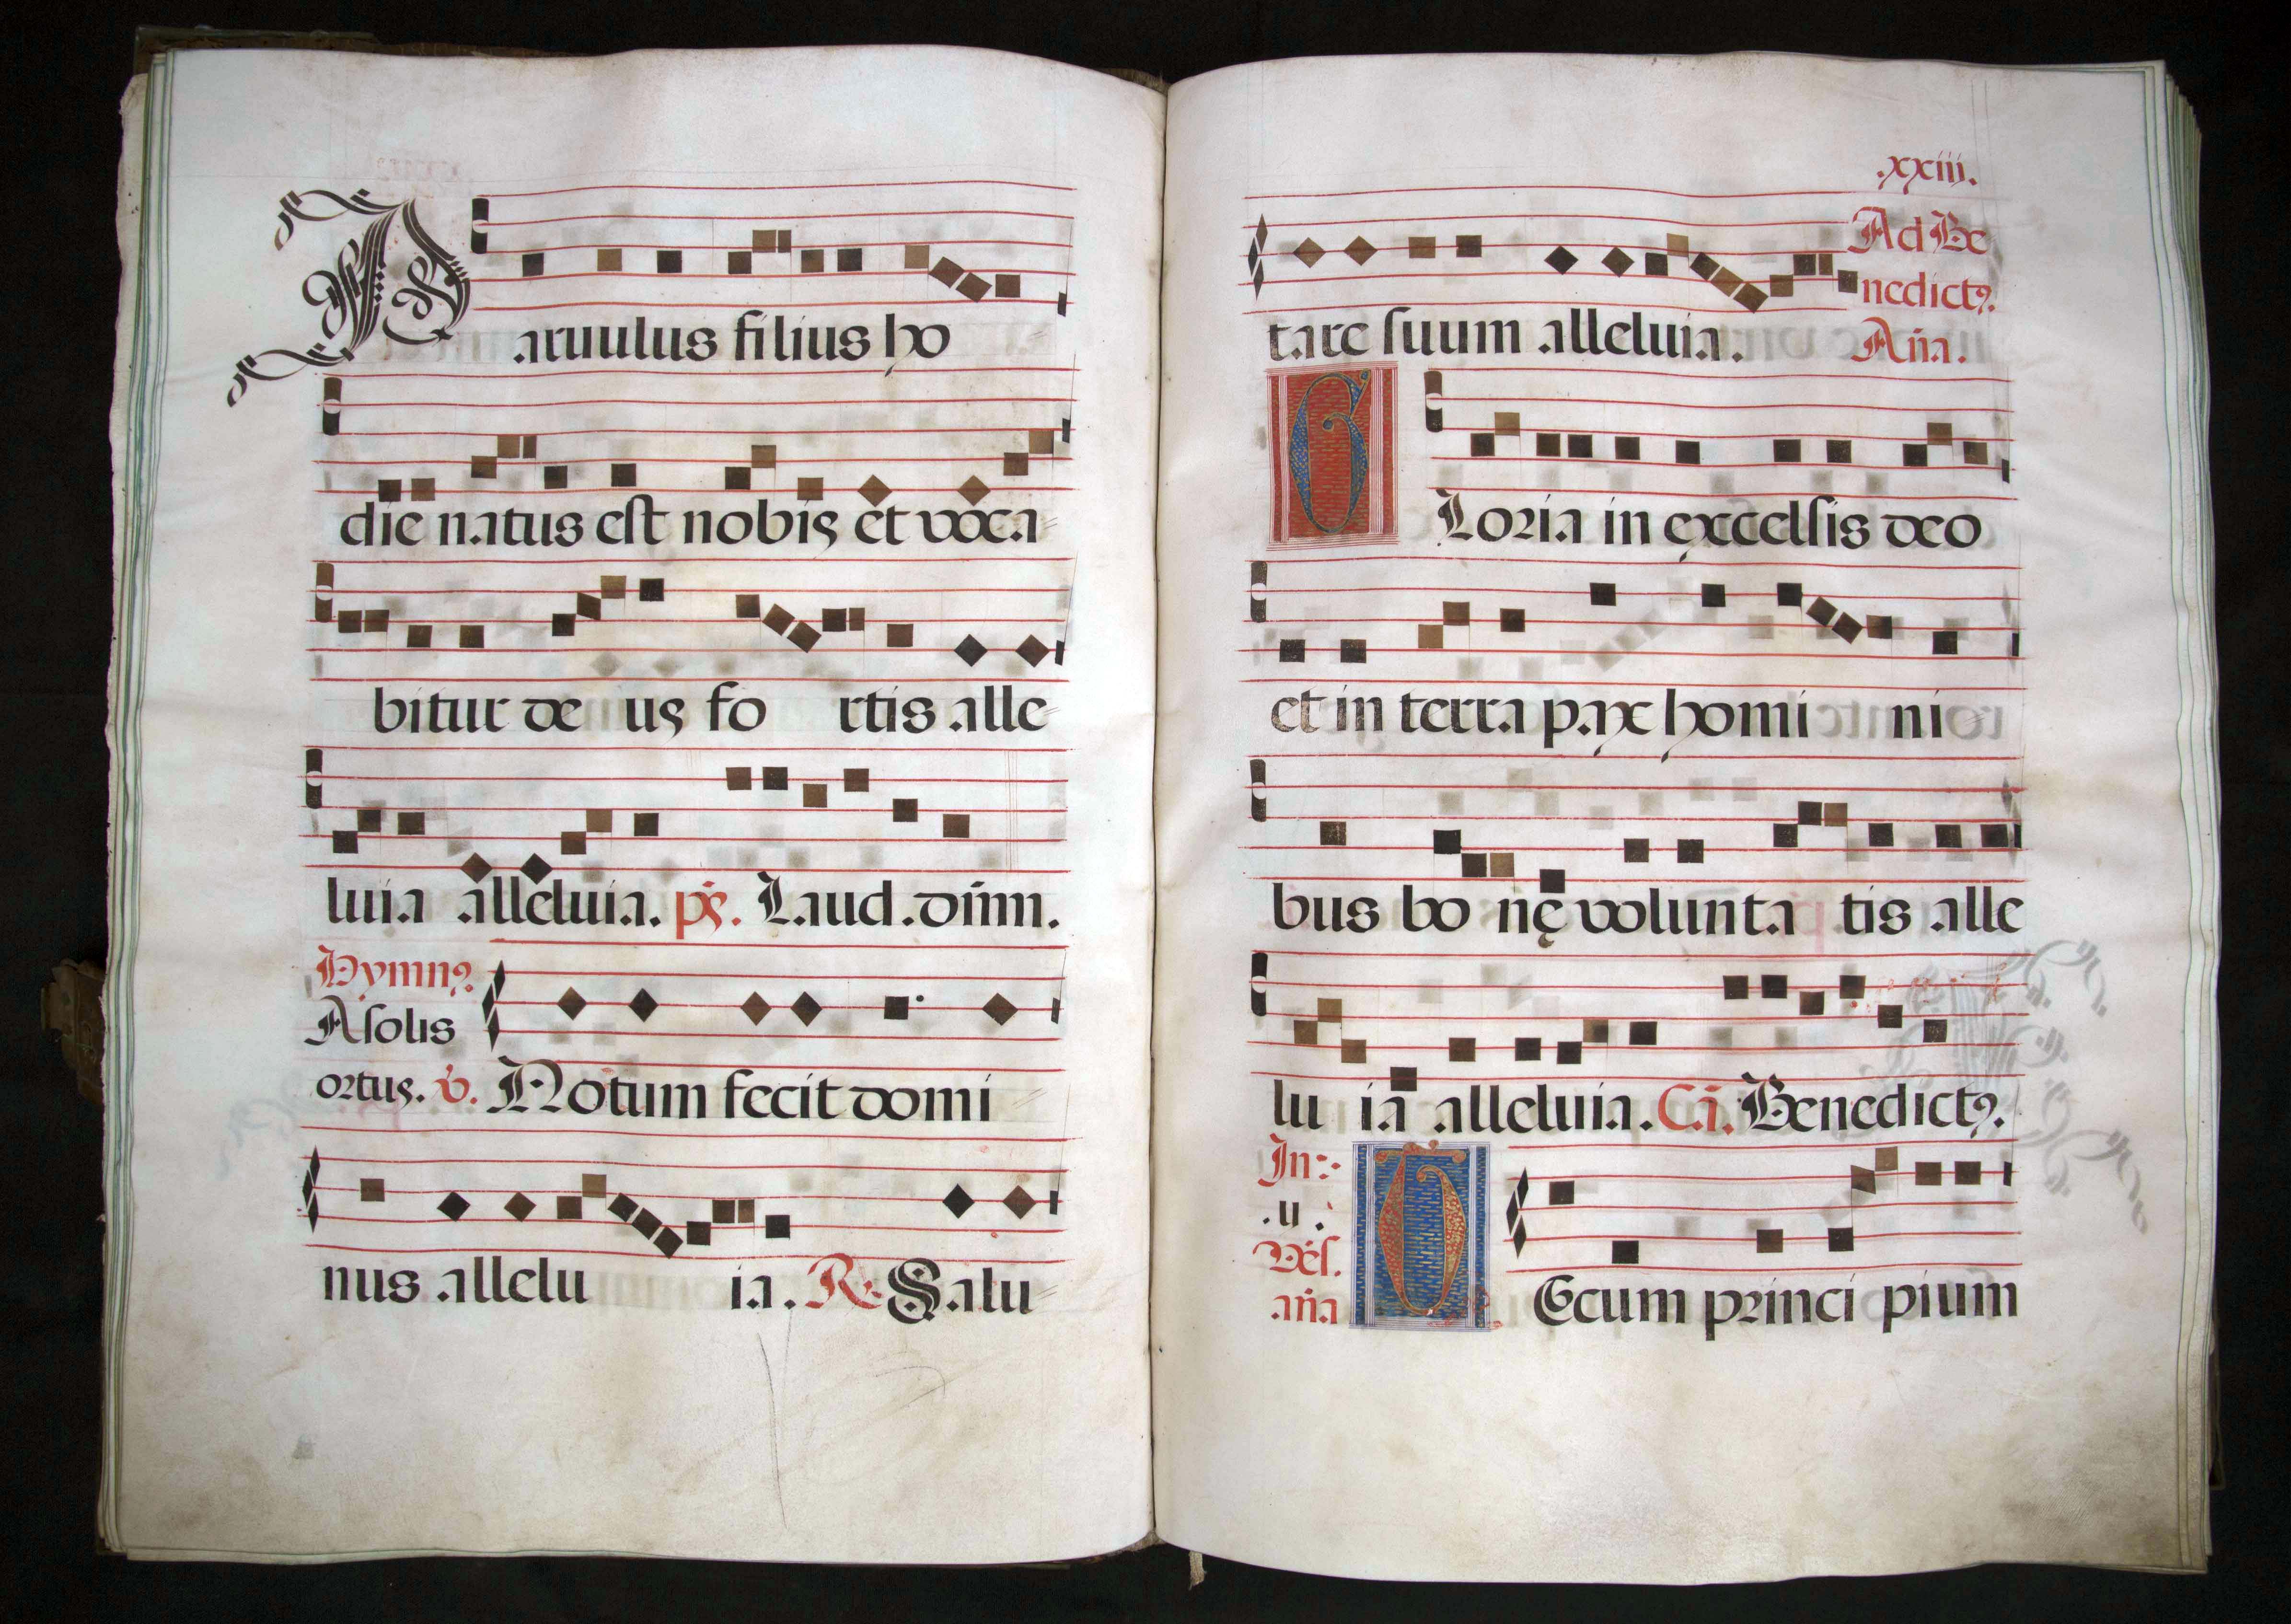 Paruulus filius ho
die natus est nobis et voca
bitur de us fo rtis alle
luia alleluia. ps. Laud. dñm.
Hymnꝰ.
A solis
ortus. v. Notum fecit domi
nus allelu ia. R. Salu
.xxiii.
Ad Be
nedictꝰ.
tare suum alleluia. Aña.
Gloria in excelsis deo
et in terra pax homi ni
bus bo nę volunta tis alle
lu ia alleluia. Cã. Benedictꝰ.
In
.ii.
Ves.
aña
Tecum princi pium